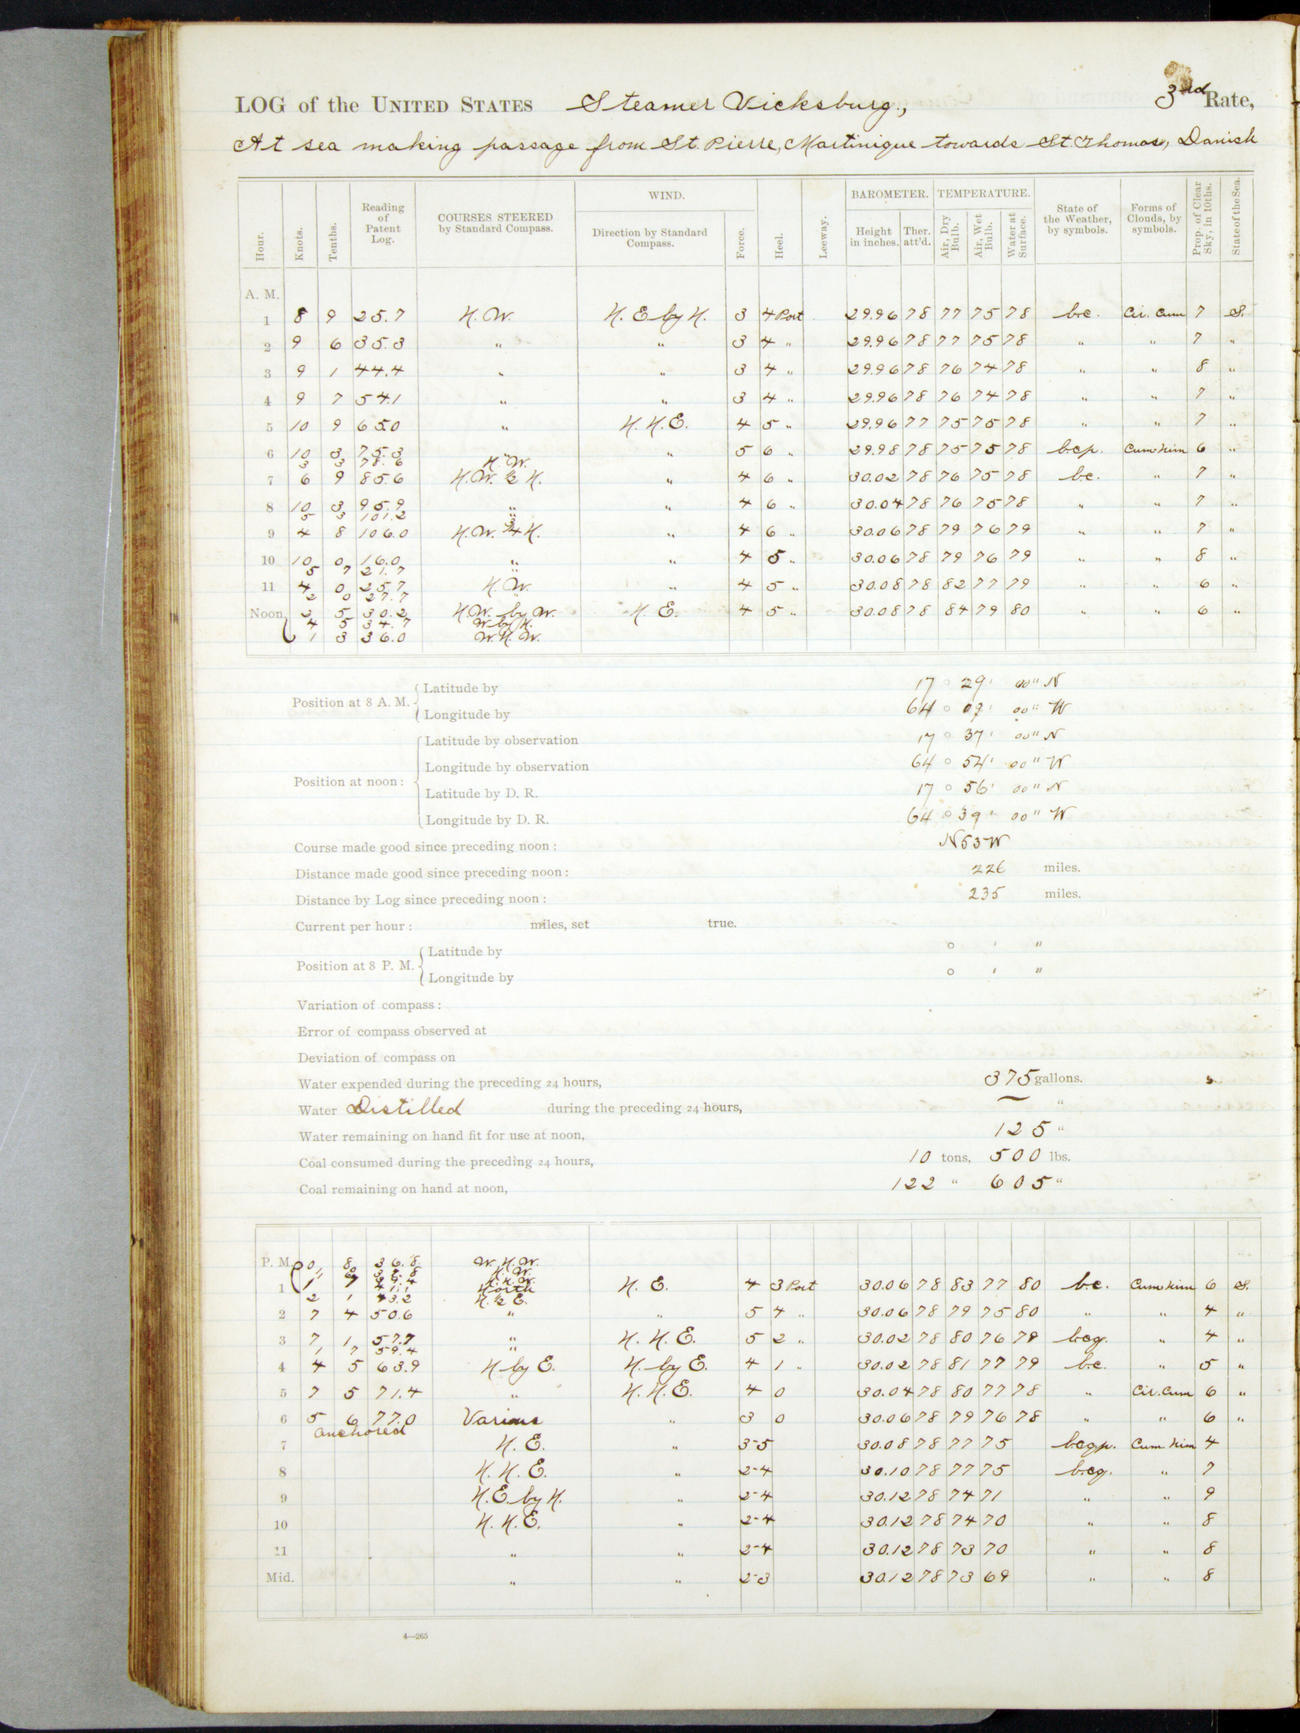 LOG of the UNITED STATES Steamer Vicksburg, 3rd Rate,
At sea making passage from St Pierre, Martinique towards St Thomas, Danish
Hour. Knots. Tenths. Reading of Patent Log. COURSES STEERED by Standard Compass. WIND. Direction by Standard Compass. Force. Heel. Leeway. BAROMETER. Height in inches. Ther. att'd. TEMPERATURE. Air, Dry Bulb. Air, Wet Bulb. Water at Surface. State of the Weather, by symbols. Forms of Clouds, by symbols. Prop. of Clear Sky, in 10ths. State of the Sea.
A. M.
1 8 9 25.7 N.W. N.E. by N. 3 4 Port 29.96 78 77 75 78 b.c. Cir. Cum 7 S.
2 9 6 35.3 " " 3 4 " 29.96 78 77 75 78 " " 7 "
3 9 1 44.4 " " 3 4 " 29.96 78 76 74 78 " " 8 "
4 9 7 54.1 " " 3 4 " 29.96 78 76 74 78 " " 7 "
5 10 9 65.0 " N.N.E. 4 5 " 29.96 77 75 75 78 " " 7 "
6 10 3 75.3 " " 5 6 " 29.98 78 75 75 78 b.c.p. Cum Nim 6 "
3 3 78.6 N.W.
7 6 9 85.6 N.W. ½ N. " 4 6 " 30.02 78 76 75 78 b.c. " 7 "
8 10 3 95.9 " " 4 6 " 30.04 78 76 75 78 " " 7 "
5 3 101.2 "
9 4 8 106.0 N.W. ¾ N. " 4 6 " 30.06 78 79 76 79 " " 7 "
10 10 0 16.0 " " 4 5 " 30.06 78 79 76 79 " " 8 "
5 7 21.7 "
11 4 0 25.7 N.W. " 4 5 " 30.08 78 82 77 79 " " 6 "
2 0 27.7 "
Noon 2 5 30.2 N.W. by W. N.E. 4 5 " 30.08 78 84 79 80 " " 6 "
4 5 34.7 W. by N.
1 3 36.0 W.N.W.
Position at 8 A. M. Latitude by 17 ° 29 ' 00 " N
Longitude by 64 ° 09 ' 00 " W
Position at noon: Latitude by observation 17 ° 37 ' 00 " N
Longitude by observation 64 ° 54 ' 00 " W
Latitude by D. R. 17 ° 56 ' 00 " N
Longitude by D. R. 64 ° 39 ' 00 " W
Course made good since preceding noon: N53W
Distance made good since preceding noon: 226 miles.
Distance by Log since preceding noon: 235 miles.
Current per hour: miles, set true.
Position at 8 P. M. Latitude by ° ' "
Longitude by ° ' "
Variation of compass:
Error of compass observed at
Deviation of compass on
Water expended during the preceding 24 hours, 375 gallons.
Water Distilled during the preceding 24 hours, "
Water remaining on hand fit for use at noon, 125 "
Coal consumed during the preceding 24 hours, 10 tons, 500 lbs.
Coal remaining on hand at noon, 122 " 605 "
P. M. 0 8 36.8 W.N.W.
N.W.
N.N.W.
North
1 2 1 43.2 N. ½ E. N.E. 4 3 Port 30.06 78 83 77 80 b.c. Cum Nim 6 S.
2 7 4 50.6 " " 5 4 " 30.06 78 79 75 80 " " 4 "
3 7 1 57.7 " N.N.E. 5 2 " 30.02 78 80 76 79 b.c.g. " 4 "
1 7 59.4 "
4 4 5 63.9 N by E. N. by E. 4 1 " 30.02 78 81 77 79 b.c. " 5 "
5 7 5 71.4 " N.N.E. 4 0 30.04 78 80 77 78 " Cir. Cum 6 "
6 5 6 77.0 Various " 3 0 30.06 78 79 76 78 " " 6 "
anchored
7 N.E. " 3-5 30.08 78 77 75 b.c.g.p. Cum Nim 4
8 N.N.E. " 2-4 30.10 78 77 75 b.c.g. " 7
9 N.E. by N. " 2-4 30.12 78 74 71 " " 9
10 N.N.E. " 2-4 30.12 78 74 70 " " 8
11 " " 2-4 30.12 78 73 70 " " 8
Mid. " " 2-3 30.12 78 73 69 " " 8
4—265